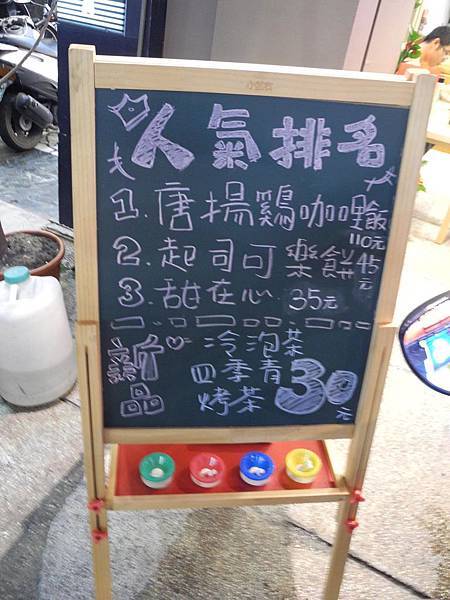 人氣排名
1. 唐揚鷄咖哩飯 110元
2. 起司可樂餅 45元
3. 甜在心 35元
新品
冷泡茶
四季青
烤茶 30元